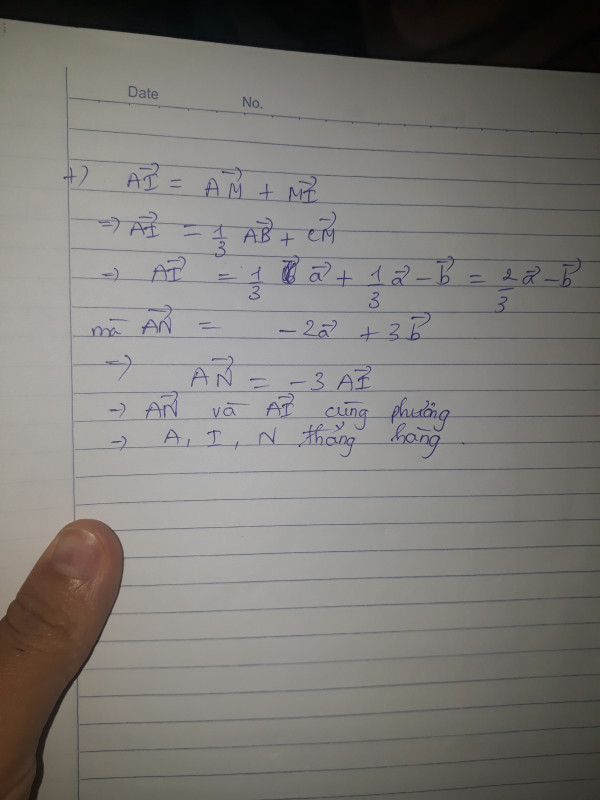 Date No.
+) AI→ = AM→ + MI→
=> AI→ = 1/3 AB→ + CM→
=> AI→ = 1/3 a→ + 1/3 a→ - b→ = 2/3 a→ - b→
mà AN→ = -2a→ + 3b→
=> AN→ = -3 AI→
→ AN→ và AI→ cùng phương
→ A, I, N thẳng hàng.